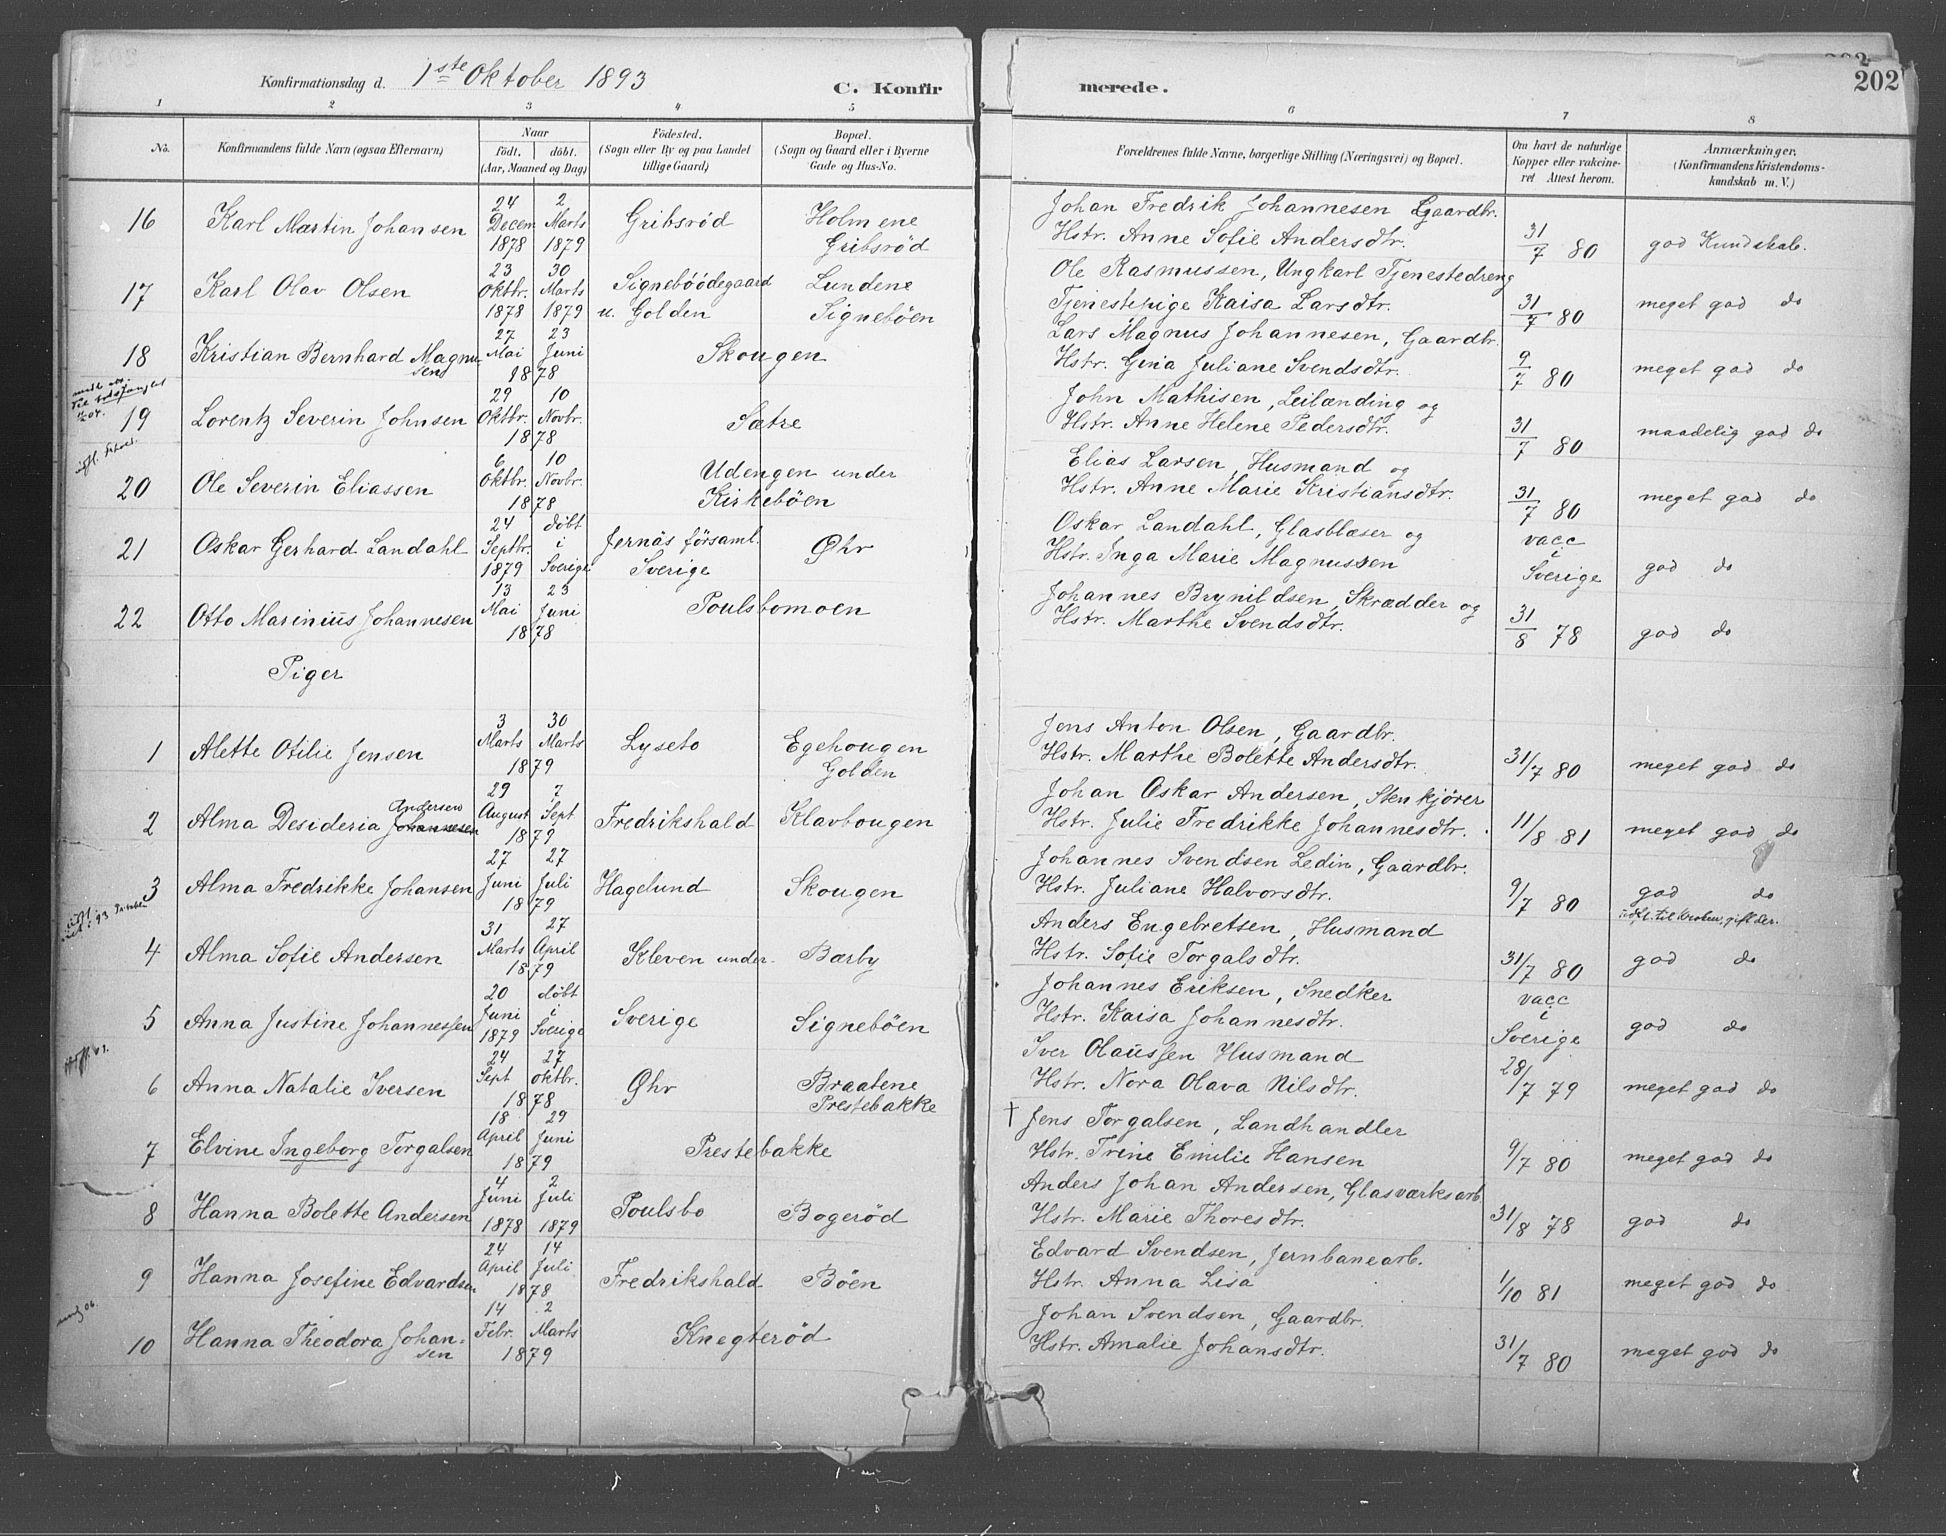 Konfirmationsdag d. 1ste Oktober 1893
C. Konfirmerede.
202
1 2 3 4 5 6 7 8
No.
Konfirmandens fulde Navn (ogsaa Efternavn)
Naar
födt. döbt.
(Aar, Maaned og Dag)
Födested.
(Sogn eller By og paa Landet
tillige Gaard)
Bopæl.
(Sogn og Gaard eller i Byerne
Gade og Hus-No.
Forældrenes fulde Navne, borgerlige Stilling (Næringsvei) og Bopæl.
Om havt de naturlige
Kopper eller vakcine-
ret Attest herom.
Anmærkninger,
(Konfirmandens Kristendoms-
kundskab m. V.)
16 Karl Martin Johansen 24 Decem 1878 2 Marts 1879 Gribsrød Holmene Gribsrød
Johan Fredrik Johannesen Gaardbr.
Hstr. Anne Sofie Andersdtr. 31/7 80 god Kundskab.
17 Karl Olav Olsen 23 Oktbr. 1878 30 Marts 1879 Signebøödegaard u. Golden Lundene Signebøen
Ole Rasmussen, Ungkarl Tjenestedreng
Tjenestepige Kaisa Larsdtr. 31/7 80 meget god do
18 Kristian Bernhard Magnusens 27 Mai 23 Juni 1878 Skougen
Lars Magnus Johannesen, Gaardbr.
Hstr. Gina Juliane Svendsdtr. 9/7 80 meget god do
19 Lorentz Severin Johnsen 29 Oktbr. 10 Novbr. 1878 Sætre
John Mathisen, Leilænding og
Hstr. Anne Helene Pedersdtr. 31/7 80 maadelig god do
20 Ole Severin Eliassen 6 Oktbr. 10 Novbr. 1878 Udengen under Kirkebøen
Elias Larsen, Husmand og
Hstr. Anne Marie Kristiansdtr. 31/7 80 meget god do
21 Oskar Gerhard Landahl 24 Septbr. 1879 døbt i Sverige Jernäs församl. Sverige Øhr
Oskar Landahl, Glasblæser og
Hstr. Inga Marie Magnussen vacc i Sverige god do
22 Otto Marinius Johannesen 13 Mai 23 Juni 1878 Poulsbomoen
Johannes Brynildsen, Skrædder og
Hstr. Marthe Svendsdtr. 31/8 78 god do
Piger
1 Alette Otilie Jensen 3 Marts 30 Marts 1879 Lyseto Egehougen Golden
Jens Anton Olsen, Gaardbr.
Hstr. Marthe Bolette Andersdtr. 31/7 80 meget god do
2 Alma Desideria Johannesen Andersen 29 August 7 Sept 1879 Fredrikshald Klavbougen
Johan Oskar Andersen, Stenkjører
Hstr. Julie Fredrikke Johannesdtr. 11/8 81 meget god do
3 Alma Fredrikke Johansen 27 Juni 27 Juli 1879 Hagelund Skougen
Johannes Svendsen Ledin, Gaardbr.
Hstr. Juliane Halvorsdtr. 9/7 80 god do
4 Alma Sofie Andersen 31 Marts 27 April 1879 Kleven under Bærby
Anders Engebretsen, Husmand
Hstr. Sofie Torgalsdtr. 31/7 80 god do
5 Anna Justine Johannessen 20 Juni 1879 døbt i Sverige Sverige Signebøen
Johannes Eriksen, Snedker
Hstr. Kaisa Johannesdtr. vacc i Sverige god do
6 Anna Natalie Iversen 24 Sept 27 Oktbr. 1878 Øhr Braatene Prestebakke
Iver Olaussen Husmand
Hstr. Nora Olava Nilsdtr. 28/7 79 meget god do
7 Elvine Ingeborg Torgalsen 18 April 29 Juni 1879 Prestebakke
† Jens Torgalsen, Landhandler
Hstr. Trine Emilie Hansen 9/7 80 meget god do
8 Hanna Bolette Andersen 4 Juni 1878 2 Juli 1879 Poulsbo Bogerød
Anders Johan Andersen, Glasværksarb
Hstr. Marie Thoresdtr. 31/8 78 god do
9 Hanna Josefine Edvardsen 24 April 14 Juli 1878 Fredrikshald Bøen
Edvard Svendsen, Jernbanearb.
Hstr. Anna Lisa 1/10 81 meget god do
10 Hanna Theodora Johansen 14 Febr. 2 Marts 1879 Knegterød
Johan Svendsen, Gaardbr.
Hstr. Amalie Johansdtr. 31/7 80 meget god do